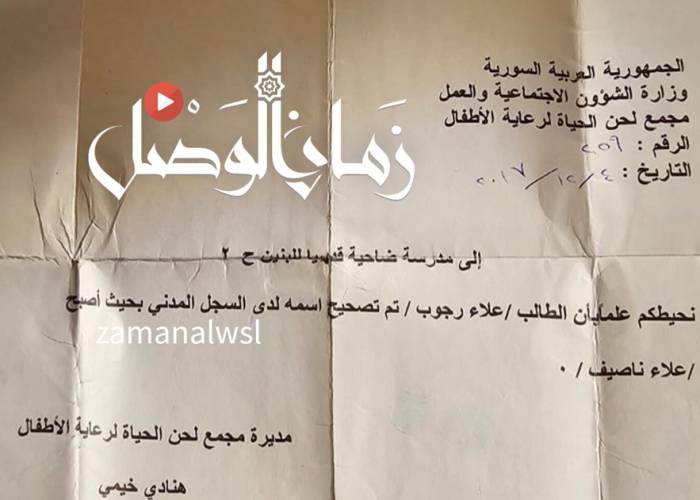 الجمهورية العربية السورية
وزارة الشؤون الاجتماعية والعمل
مجمع لحن الحياة لرعاية الأطفال
الرقم : ٢٥٩
التاريخ : ٤ / ١٢ / ٢٠١٧
زمان الوصل
إلى مدرسة ضاحية قدسيا للبنين ح ٢
نحيطكم علمابأن الطالب /علاء رجوب / تم تصحيح اسمه لدى السجل المدني بحيث أصبح
zamanalwsl
/علاء ناصيف / ٠
مديرة مجمع لحن الحياة لرعاية الأطفال
هنادي خيمي